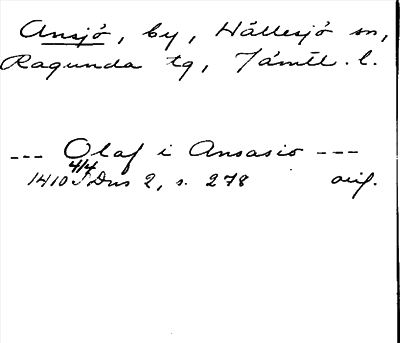 Ansjö, by, Hällesjö sn,
Ragunda tg, Jämtl. l.
--- Olaf i Ansasio ---
1410 4/4 J Dns 2, s. 278 orig.